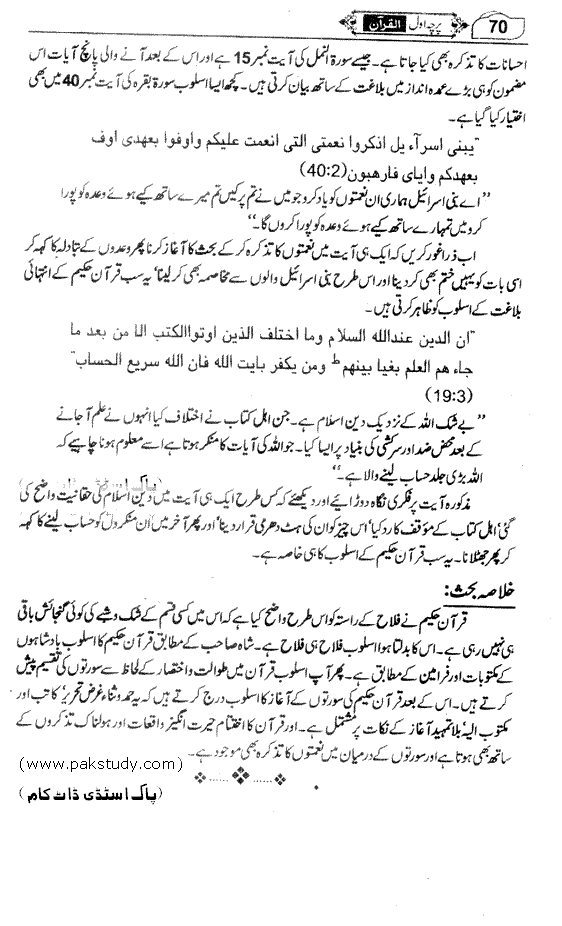 70 پرچہ اول القرآن
احسانات کا تذکرہ بھی کیا جاتا ہے۔ جیسے سورۃ النمل کی آیت نمبر 15 ہے اور اس کے بعد آنے والی پانچ آیات اس
مضمون کو ہی بڑے عمدہ انداز میں بلاغت کے ساتھ بیان کرتی ہیں۔ کچھ ایسا اسلوب سورۃ بقرہ کی آیت نمبر 40 میں بھی
اختیار کیا گیا ہے۔
"یبنی اسرآء یل انکروا نعمتی التی انعمت علیکم واوفوا بعهدی اوف
بعهدکم وایای فارهبون (40:2)
"اے بنی اسرائیل ہماری ان نعمتوں کو یاد کرو جو میں نے تم پر کیں تم میرے ساتھ کیے ہوئے وعدہ کو پورا
کرو میں تمہارے ساتھ کیے ہوئے وعدہ کو پورا کروں گا۔"
اب ذرا غور کریں کہ ایک ہی آیت میں نعمتوں کا تذکرہ کر کے بحث کا آغاز کرنا پھر وعدوں کے تبادلہ کا کہہ کر
اسی بات کو یہیں ختم بھی کر دینا اور اس طرح بنی اسرائیل والوں سے مخاصمہ بھی کر لینا' یہ سب قرآن حکیم کے انتہائی
بلاغت کے اسلوب کو ظاہر کرتی ہیں۔
"ان الدین عندالله السلام وما اختلف الذین اوتوا الکتب الا من بعد ما
جاء هم العلم بغیا بینهم ط ومن یکفر بایت الله فان الله سریع الحساب"
(19:3)
"بے شک اللہ کے نزدیک دین اسلام ہے۔ جن اہل کتاب نے اختلاف کیا انہوں نے علم آ جانے
کے بعد محض ضد اور سرکشی کی بنیاد پر ایسا کیا۔ جو اللہ کی آیات کا منکر ہوتا ہے اسے معلوم ہونا چاہیے کہ
اللہ بڑی جلد حساب لینے والا ہے۔"
مذکورہ آیت پر فکری نگاہ دوڑائیے اور دیکھئے کہ کس طرح ایک ہی آیت میں دین اسلام کی حقانیت واضح کی
گئی' اہل کتاب کے مؤقف کا رد کیا' اس چیز کو ان کی ہٹ دھرمی قرار دینا' اور پھر آخر میں ان منکروں کو حساب لینے کا کہہ
کر پھر جھٹلانا۔ یہ سب قرآن حکیم کے اسلوب کا ہی خاصہ ہے۔
خلاصہ بحث:
قرآن حکیم نے فلاح کے راستہ کو اس طرح واضح کیا ہے کہ اس میں کسی قسم کے شک و شبے کی کوئی گنجائش باقی
ہی نہیں رہی ہے۔ اس کا بدلتا ہوا اسلوب فلاح ہی فلاح ہے۔ شاہ صاحب کے مطابق قرآن حکیم کا اسلوب بادشاہوں
کے مکتوبات اور فرامین کے مطابق ہے۔ پھر آپ اسلوب قرآن میں طوالت و اختصار کے لحاظ سے سورتوں کی تقسیم پیش
کرتے ہیں۔ اس کے بعد قرآن حکیم کی سورتوں کے آغاز کا اسلوب درج کرتے ہیں کہ یہ حمد و ثناء' غرض تحریر' کاتب اور
مکتوب الیہ' بلا تمہید آغاز کے نکات پر مشتمل ہے۔ اور قرآن کا اختتام حیرت انگیز واقعات اور ہولناک تذکروں کے
ساتھ بھی ہوتا ہے اور سورتوں کے درمیان میں نعمتوں کا تذکرہ بھی موجود ہے۔
(www.pakstudy.com)
(پاک اسٹڈی ڈاٹ کام)